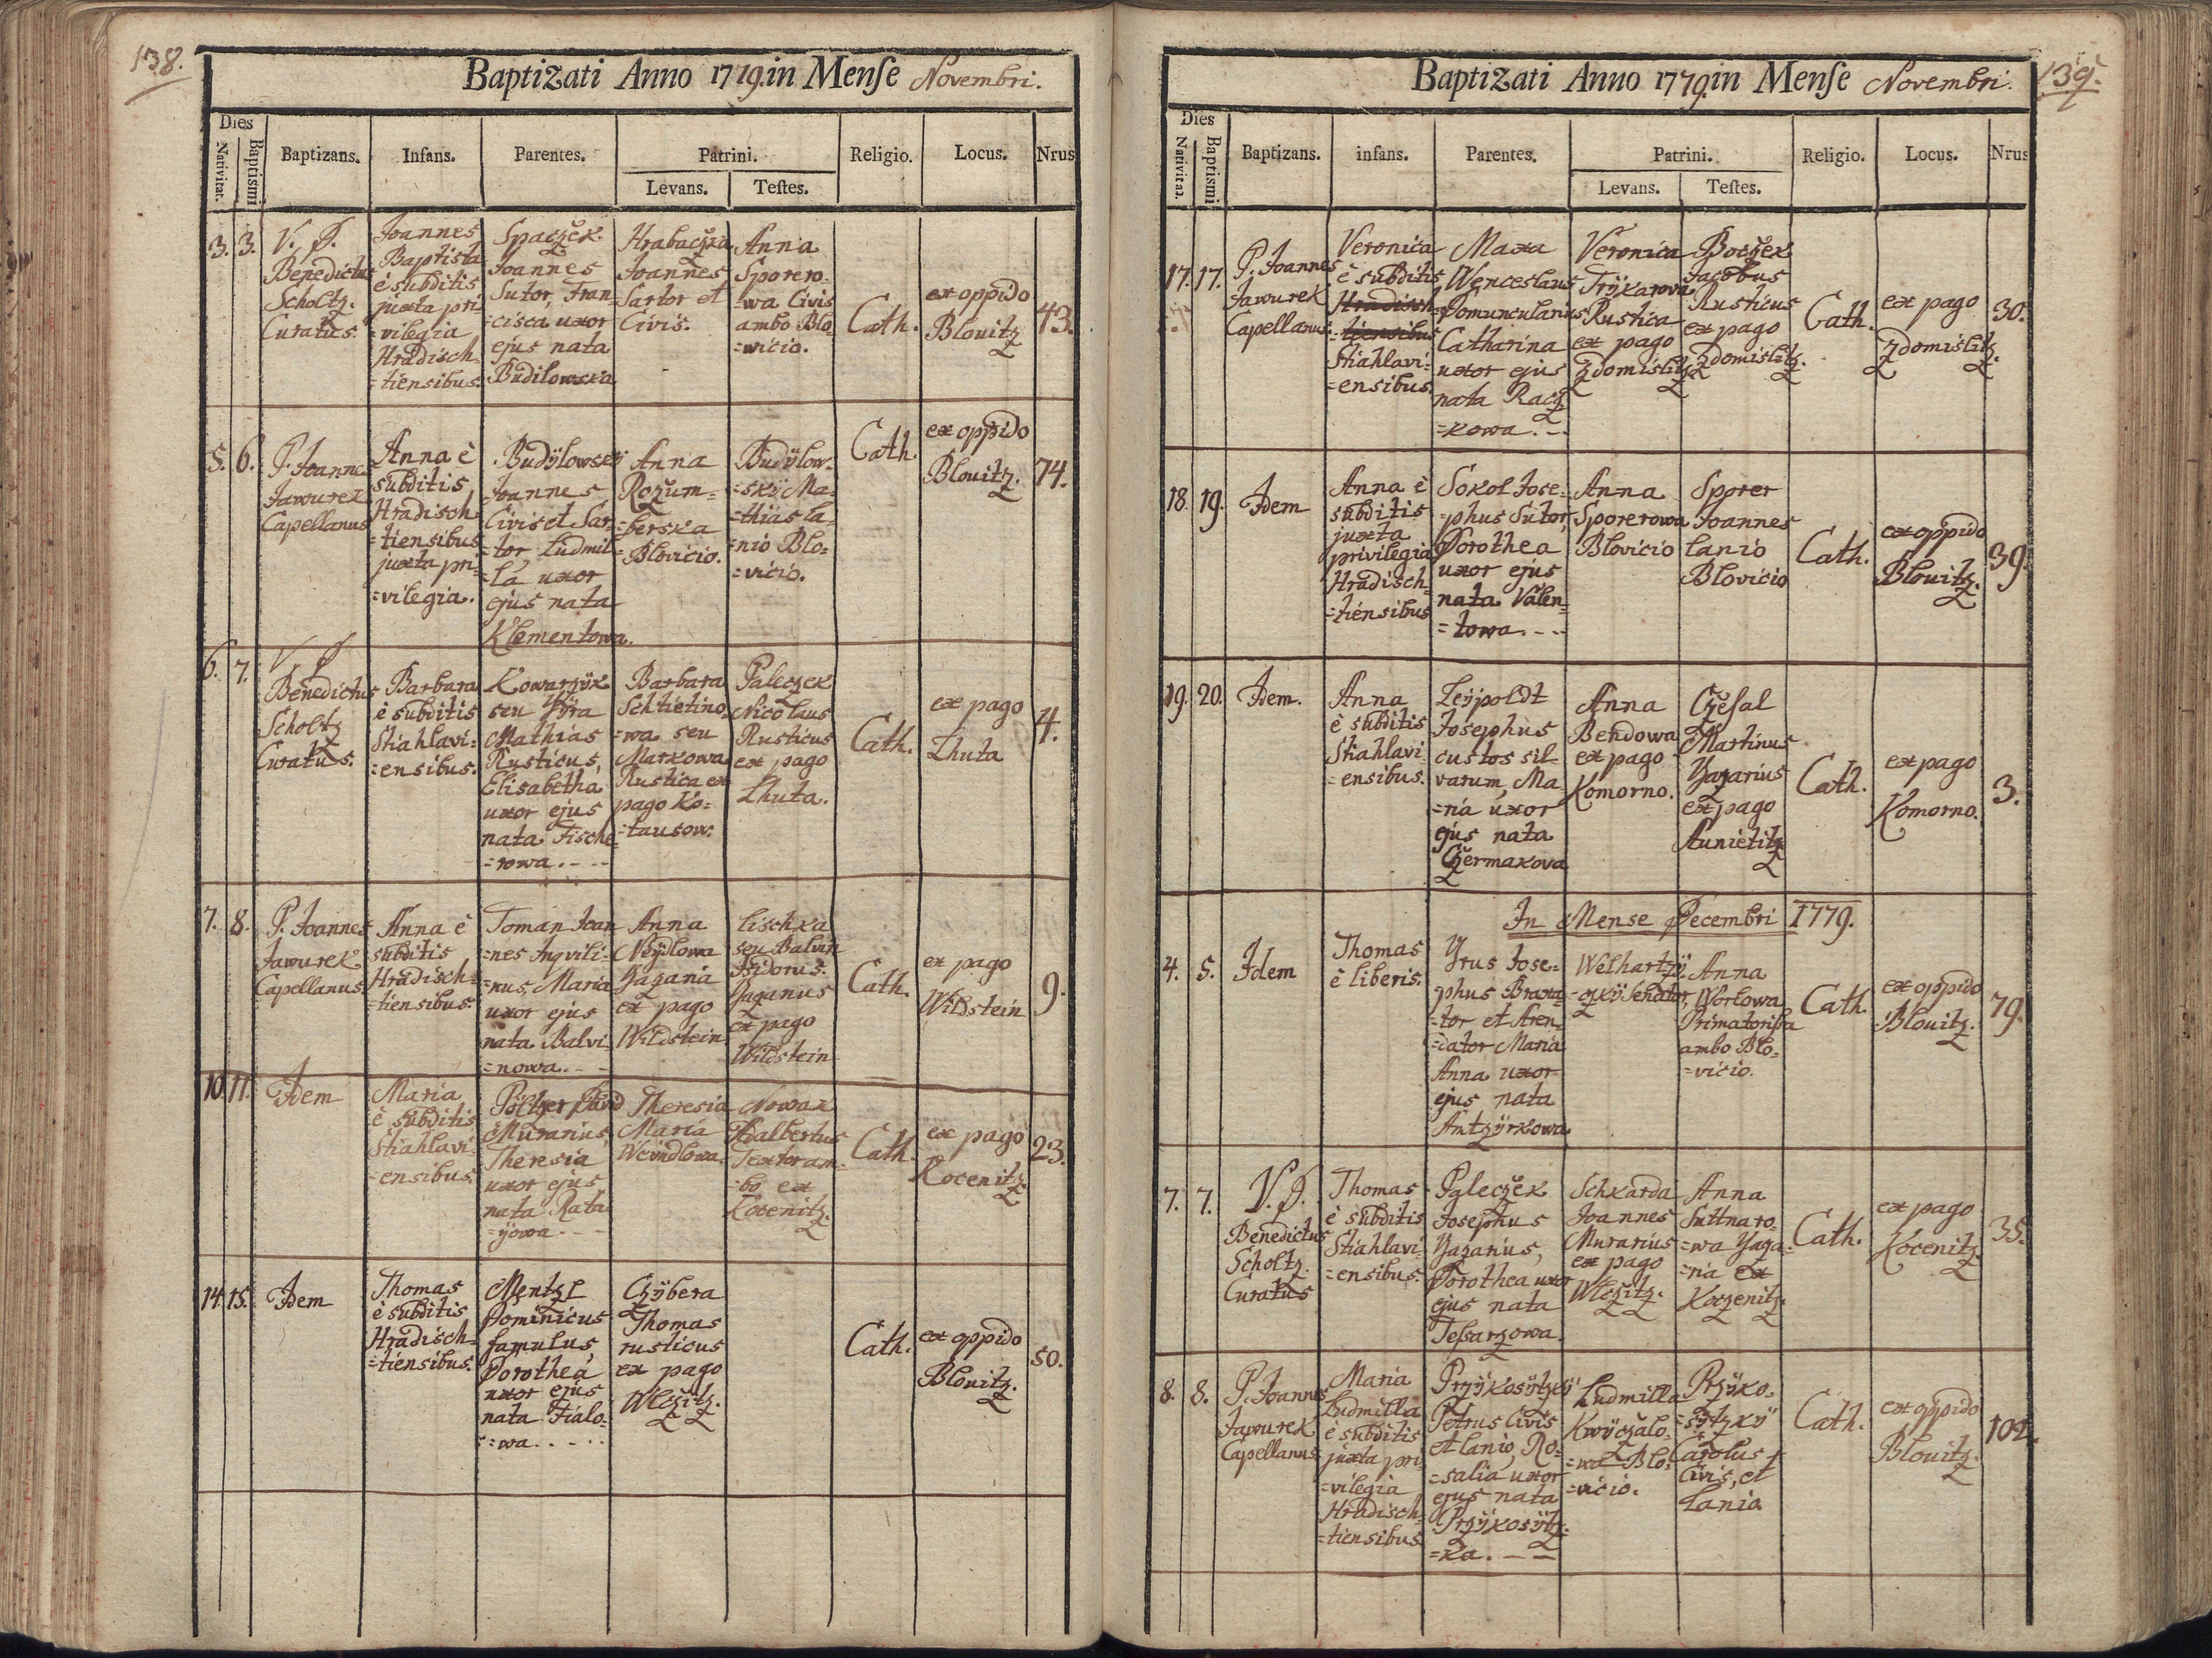 138.
Baptizati Anno 1779. in Mense Novembri.
Dies
Nativitat.
Baptismi
Baptizans.
Infans.
Parentes.
Patrini.
Levans.
Testes.
Religio.
Locus.
Nrus
3.
3.
V. P.
Benedictus
Scholtz
Curatus.
Joannes
Baptista
è subditis
juxta pri-
=vilegia
Hradisch
=tiensibus.
Spaczek
Joannes
Sutor, Fran-
=cisca uxor
ejus nata
Budilowska
Hrabaczka
Joannes
Sartor et
Civis.
Anna
Sporero-
=wa Civis
ambo Blo-
=wicio.
Cath.
ex oppido
Blouitz
43.
5.
6.
P. Joannes
Jawurek
Capellanus
Anna è
subditis
Hradisch
=tiensibus
juxta pri-
=vilegia.
Budÿlowskÿ
Joannes
Civis et Sar-
=tor Ludmil-
=la uxor
ejus nata
Klementowa.
Anna
Rozum=
=berska
Blovicio.
Budÿlow-
=skÿ Ma-
=thias la-
=nio Blo-
=vicio.
Cath.
ex oppido
Blouitz.
74.
6.
7.
V P
Benedictus
Scholtz
Curatus.
Barbara
è subditis
Stiahlavi-
=ensibus.
Kowarzÿk
seu Pÿra
Mathias
Rusticus,
Elisabetha
uxor ejus
nata Fische-
=rowa.
Barbara
Schtietino-
=wa seu
Markowa
Rustica ex
pago Ko-
=tausow.
Paleczek
Nicolaus
Rusticus
ex pago
Lhuta.
Cath.
ex pago
Lhuta
4.
7.
8.
P. Joannes
Jawurek
Capellanus.
Anna è
subditis
Hradisch=
=tiensibus.
Toman Joan
=nes Inqvili-
=nus, Maria
uxor ejus
nata Balvi-
=nowa.
Anna
Neÿdlowa
Yagania
ex pago
Wildstein
Lischka
seu Balvin
Isidorus.
Yaganus
ex pago
Wildstein
Cath.
ex pago
Wildstein
9.
10.
11.
Idem
Maria
è subditis
Stiahlavi-
=ensibus.
Pöltzer David
Murarius,
Theresia
uxor ejus
nata Rata
=ÿowa.
Theresia
Maria
Weindlowa.
Nowak
Adalbertus
Textor am-
=bo ex
Kocenitz.
Cath.
ex pago
Kocenitz
23.
14.
15.
Idem
Thomas
è subditis
Hradisch=
=tiensibus.
Mentzl
Dominicus
famulus,
Dorothea
uxor ejus
nata Fialo-
=wa.
Czÿbera
Thomas
rusticus
ex pago
Wlczitz.
Cath.
ex oppido
Blouitz.
50.
139.
Baptizati Anno 1779. in Mense Novembri.
Dies
Nativitat.
Baptismi
Baptizans.
infans.
Parentes.
Patrini.
Levans.
Testes.
Religio.
Locus.
Nrus
17.
17.
P. Joannes
Jawurek
Capellanus.
Veronica
è subditis
Hradisch
=tiensibus
Stiahlavi-
=ensibus.
Maxa
Wenceslaus
Domuncularius
Catharina
uxor ejus
nata Racz
=kowa.
Veronica
Trÿkarowa
Rustica
ex pago
Zdomislitz
Boczek
Jacobus
Rusticus
ex pago
Zdomislitz.
Cath.
ex pago
Zdomislitz.
30.
18.
19.
Idem
Anna è
subditis
juxta
privilegia
Hradisch
=tiensibus
Sokol Jose-
=phus Sutor,
Dorothea
uxor ejus
nata Valen=
=towa.
Anna
Sporerowa
Blovicio
Sporer
Joannes
lanio
Blovicio
Cath.
ex oppido
Blouitz.
39.
19.
20.
Idem.
Anna
è subditis
Stiahlavi
=ensibus.
Leÿpoldt
Josephus
custos sil-
varum, Ma-
=ria uxor
ejus nata
Czermakova
Anna
Bendowa
ex pago
Komorno.
Czesal
Martinus
Yagarius
ex pago
Aunietitz
Cath.
ex pago
Komorno.
3.
In Mense Decembri 1779.
4.
5.
Idem
Thomas
è liberis.
Yrus Jose-
phus Braxa-
=tor et Aren-
=dator Maria
Anna uxor
ejus nata
Antzÿrkowa
Welhartzÿ
=czkÿ Senator,
Anna
Worlowa
Primatorissa
ambo Blo-
=vicio.
Cath.
ex oppido
Blouitz.
79.
7.
7.
V. P.
Benedictus
Scholtz
Curatus
Thomas
è subditis
Stiahlavi-
=ensibus.
Paleczek
Josephus
Yagarius,
Dorothea uxor
ejus nata
Tessarzowa.
Schkarda
Joannes
Murarius
ex pago
Wlczitz.
Anna
Suttnaro-
=wa Yaga-
=nia ex
Koczenitz.
Cath.
ex pago
Kocenitz.
35.
8.
8.
P. Joannes
Jawurek
Capellanus
Maria
Ludmilla
è subditis
juxta pri
=vilegia
Hradisch-
=tiensibus
Przÿkosÿtzkÿ
Petrus Civis
et lanio, Ro-
=salia uxor
ejus nata
Przÿkosÿtz-
=ka.
Ludmilla
Kwÿczalo-
=wa Blo-
=vicio.
Przÿko-
=sÿtzkÿ
Carolus
Civis, et
Lanio
Cath.
ex oppido
Blouitz.
102.